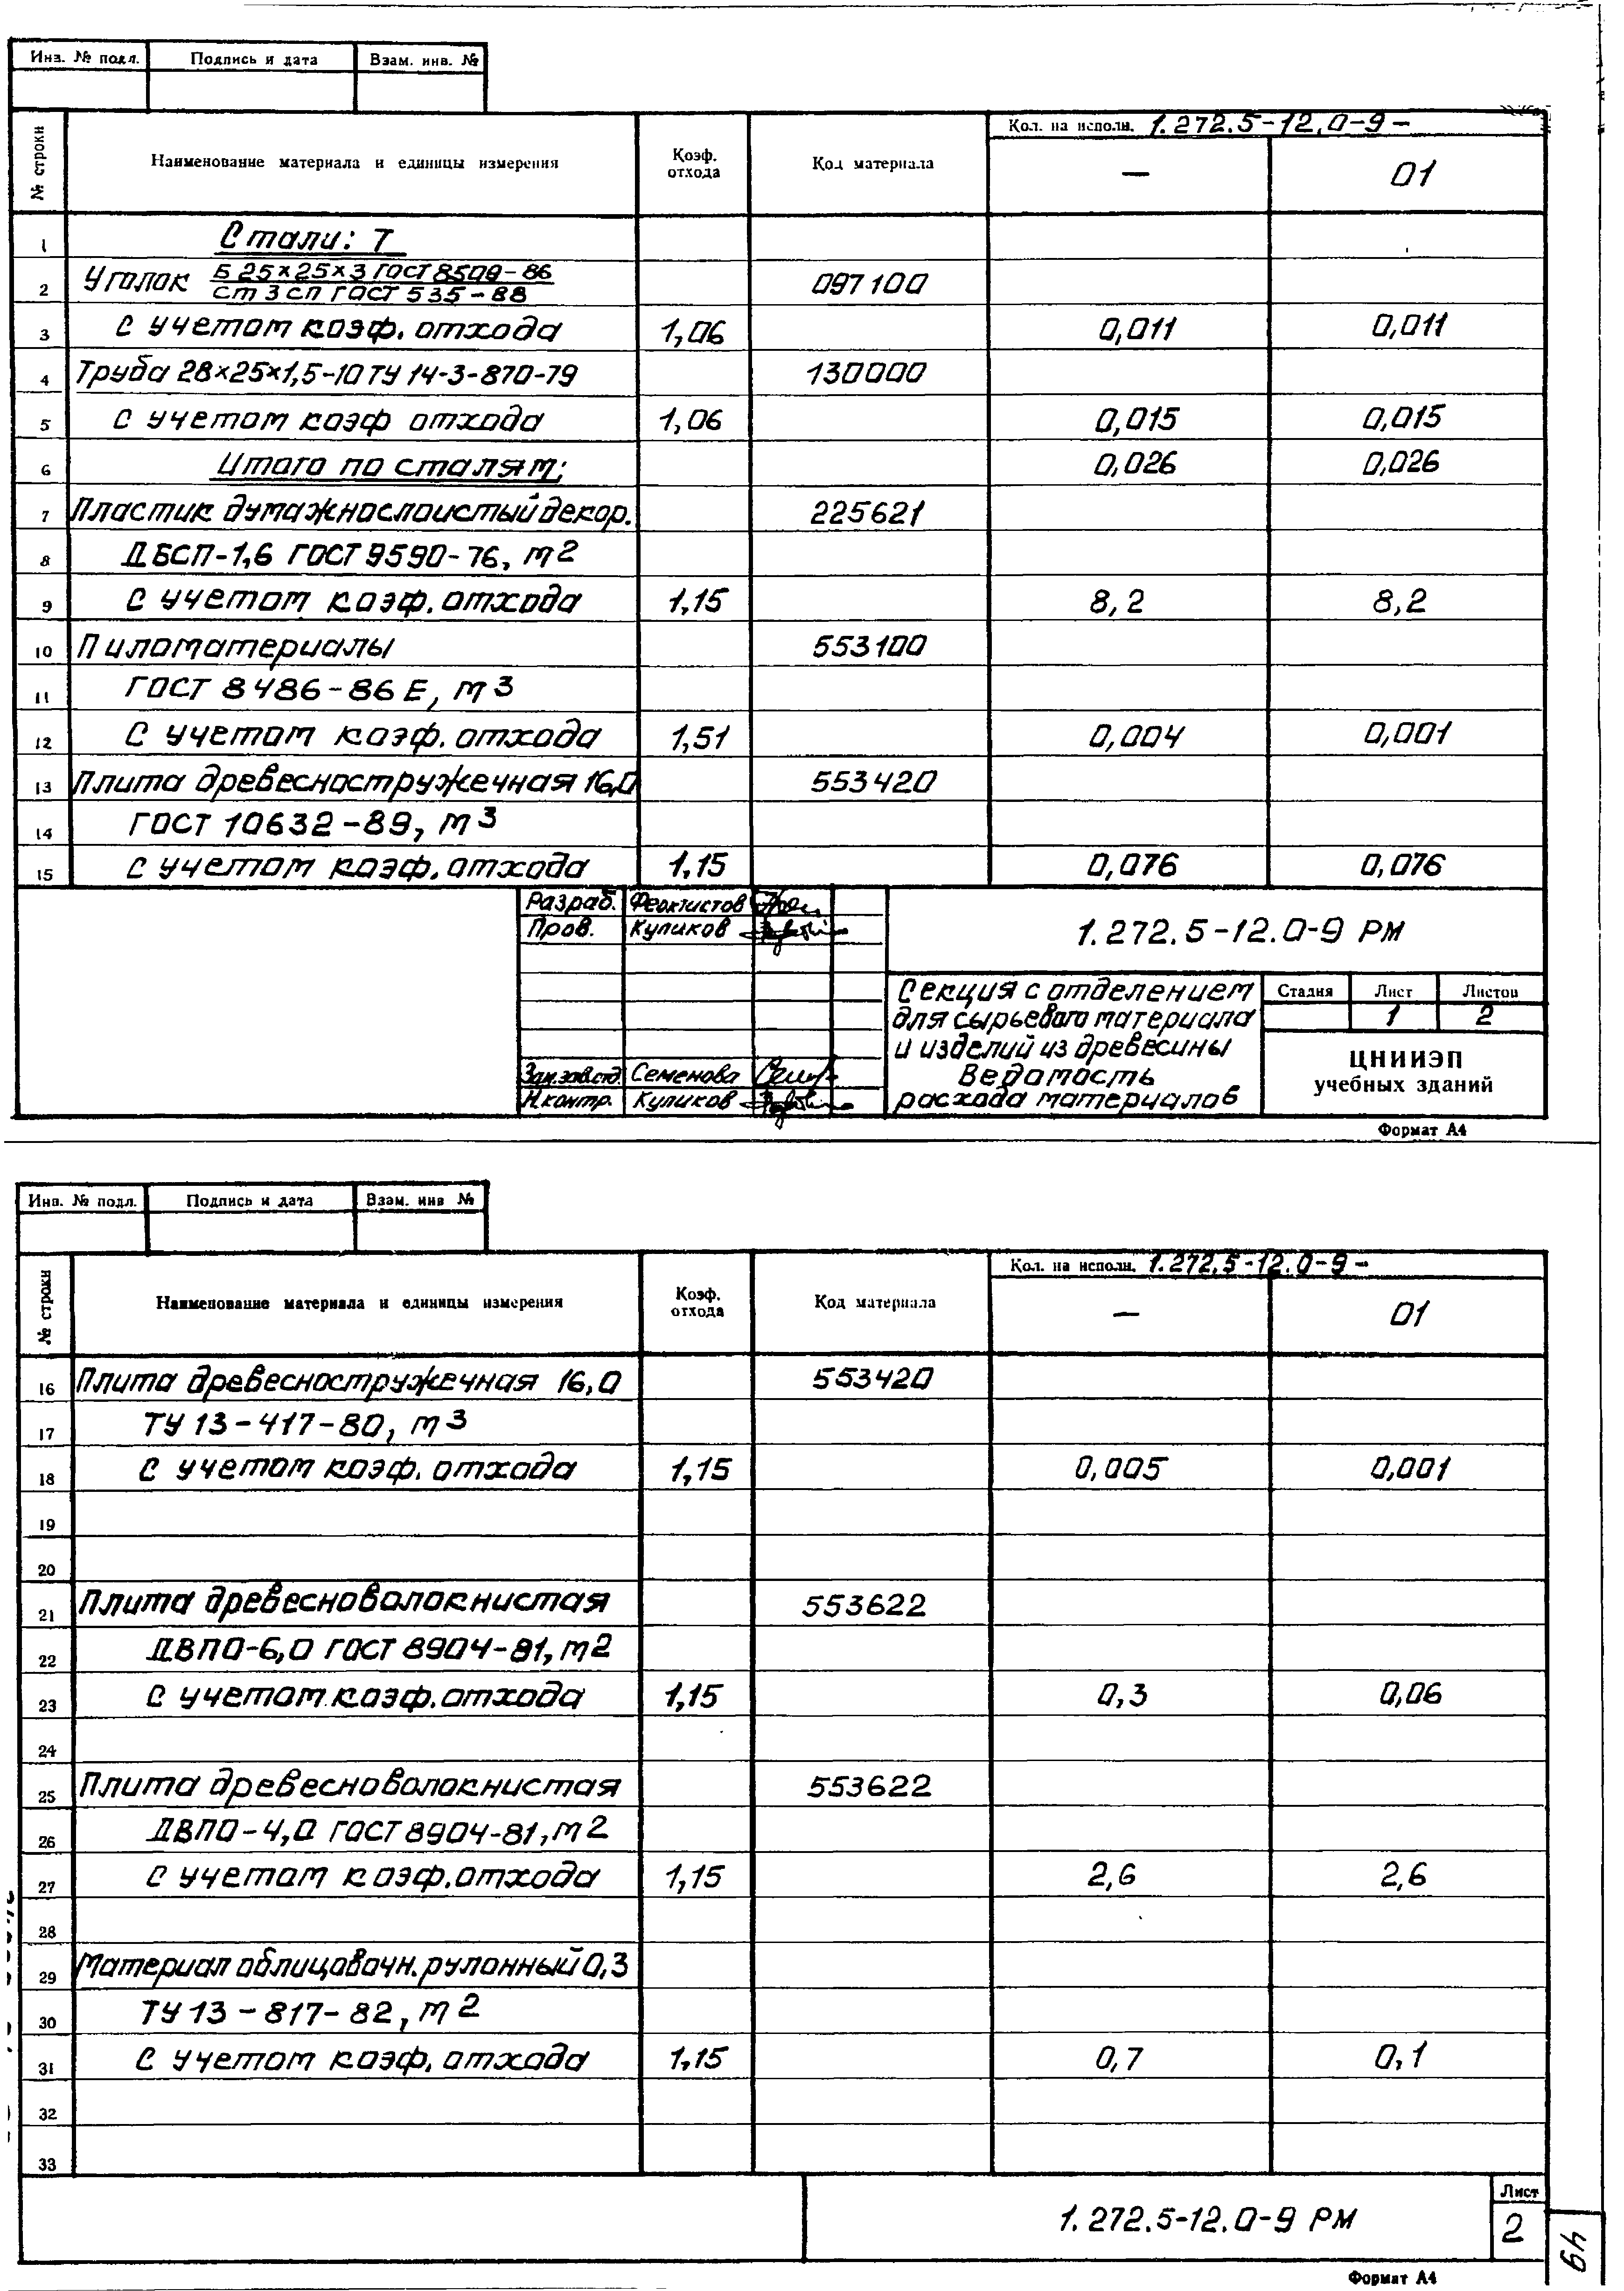 Инв. № подл. Подпись и дата Взам. инв. №
№ строки Наименование материала и единицы измерения Коэф. отхода Код материала Кол. на исполн. 1.272.5-12.0-9-
— 01
1 Стали: Т
2 Уголок Б 25×25×3 ГОСТ 8509-86 097100
Ст 3 сп ГОСТ 535-88
3 С учетом коэф. отхода 1,06 0,011 0,011
4 Труба 28×25×1,5-10 ТУ 14-3-870-79 130000
5 С учетом коэф отхода 1,06 0,015 0,015
6 Итого по сталям: 0,026 0,026
7 Пластик бумажнослоистый декор. 225621
8 ДБСП-1,6 ГОСТ 9590-76, м2
9 С учетом коэф. отхода 1,15 8,2 8,2
10 Пиломатериалы 553100
11 ГОСТ 8486-86 Е, м3
12 С учетом коэф. отхода 1,51 0,004 0,001
13 Плита древесностружечная 16,0 553420
14 ГОСТ 10632-89, м3
15 С учетом коэф. отхода 1,15 0,076 0,076
Разраб. Феоктистов
Пров. Куликов
1.272.5-12.0-9 РМ
Секция с отделением
для сырьевого материала
и изделий из древесины
Ведомость
расхода материалов
Стадия Лист Листов
1 2
Зам.зав.отд. Семенова
Н.контр. Куликов
ЦНИИЭП
учебных зданий
Формат А4
Инв. № подл. Подпись и дата Взам. инв №
№ строки Наименование материала и единицы измерения Коэф. отхода Код материала Кол. на исполн. 1.272.5-12.0-9-
— 01
16 Плита древесностружечная 16,0 553420
17 ТУ 13-417-80, м3
18 С учетом коэф. отхода 1,15 0,005 0,001
19
20
21 Плита древесноволокнистая 553622
22 ДВПО-6,0 ГОСТ 8904-81, м2
23 С учетом коэф. отхода 1,15 0,3 0,06
24
25 Плита древесноволокнистая 553622
26 ДВПО-4,0 ГОСТ 8904-81, м2
27 С учетом коэф. отхода 1,15 2,6 2,6
28
29 Материал облицовочн. рулонный 0,3
30 ТУ 13-817-82, м2
31 С учетом коэф. отхода 1,15 0,7 0,1
32
33
1.272.5-12.0-9 РМ
Лист
2
49
Формат А4